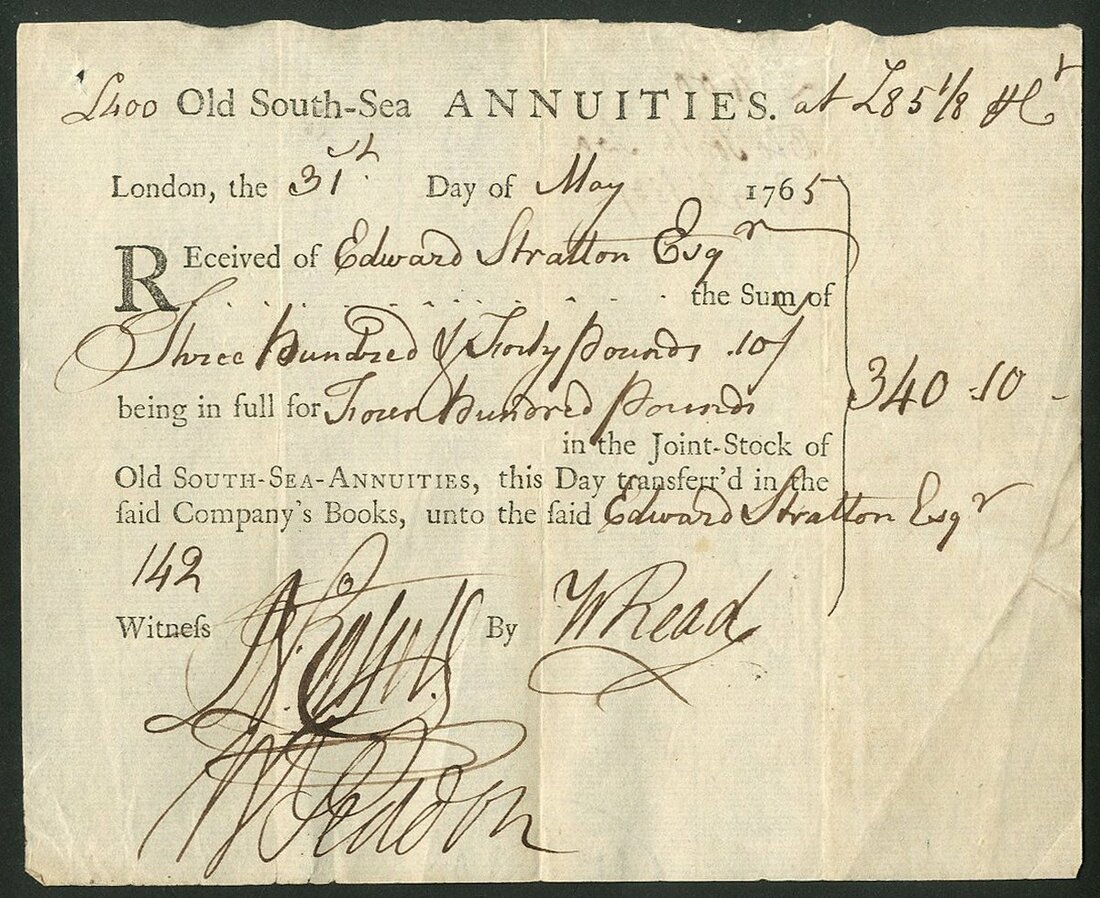 £400 Old South-Sea ANNUITIES. at £85 1/8 
London, the 31st. Day of May 1765
REceived of Edward Stratton Esqr
the Sum of
Three Hundred & Forty Pounds .10/
340 .10 -
being in full for Four Hundred Pounds
in the Joint-Stock of
Old SOUTH-SEA-ANNUITIES, this Day transferr'd in the
ſaid Company's Books, unto the ſaid Edward Stratton Esqr
142
Witneſs By WRead